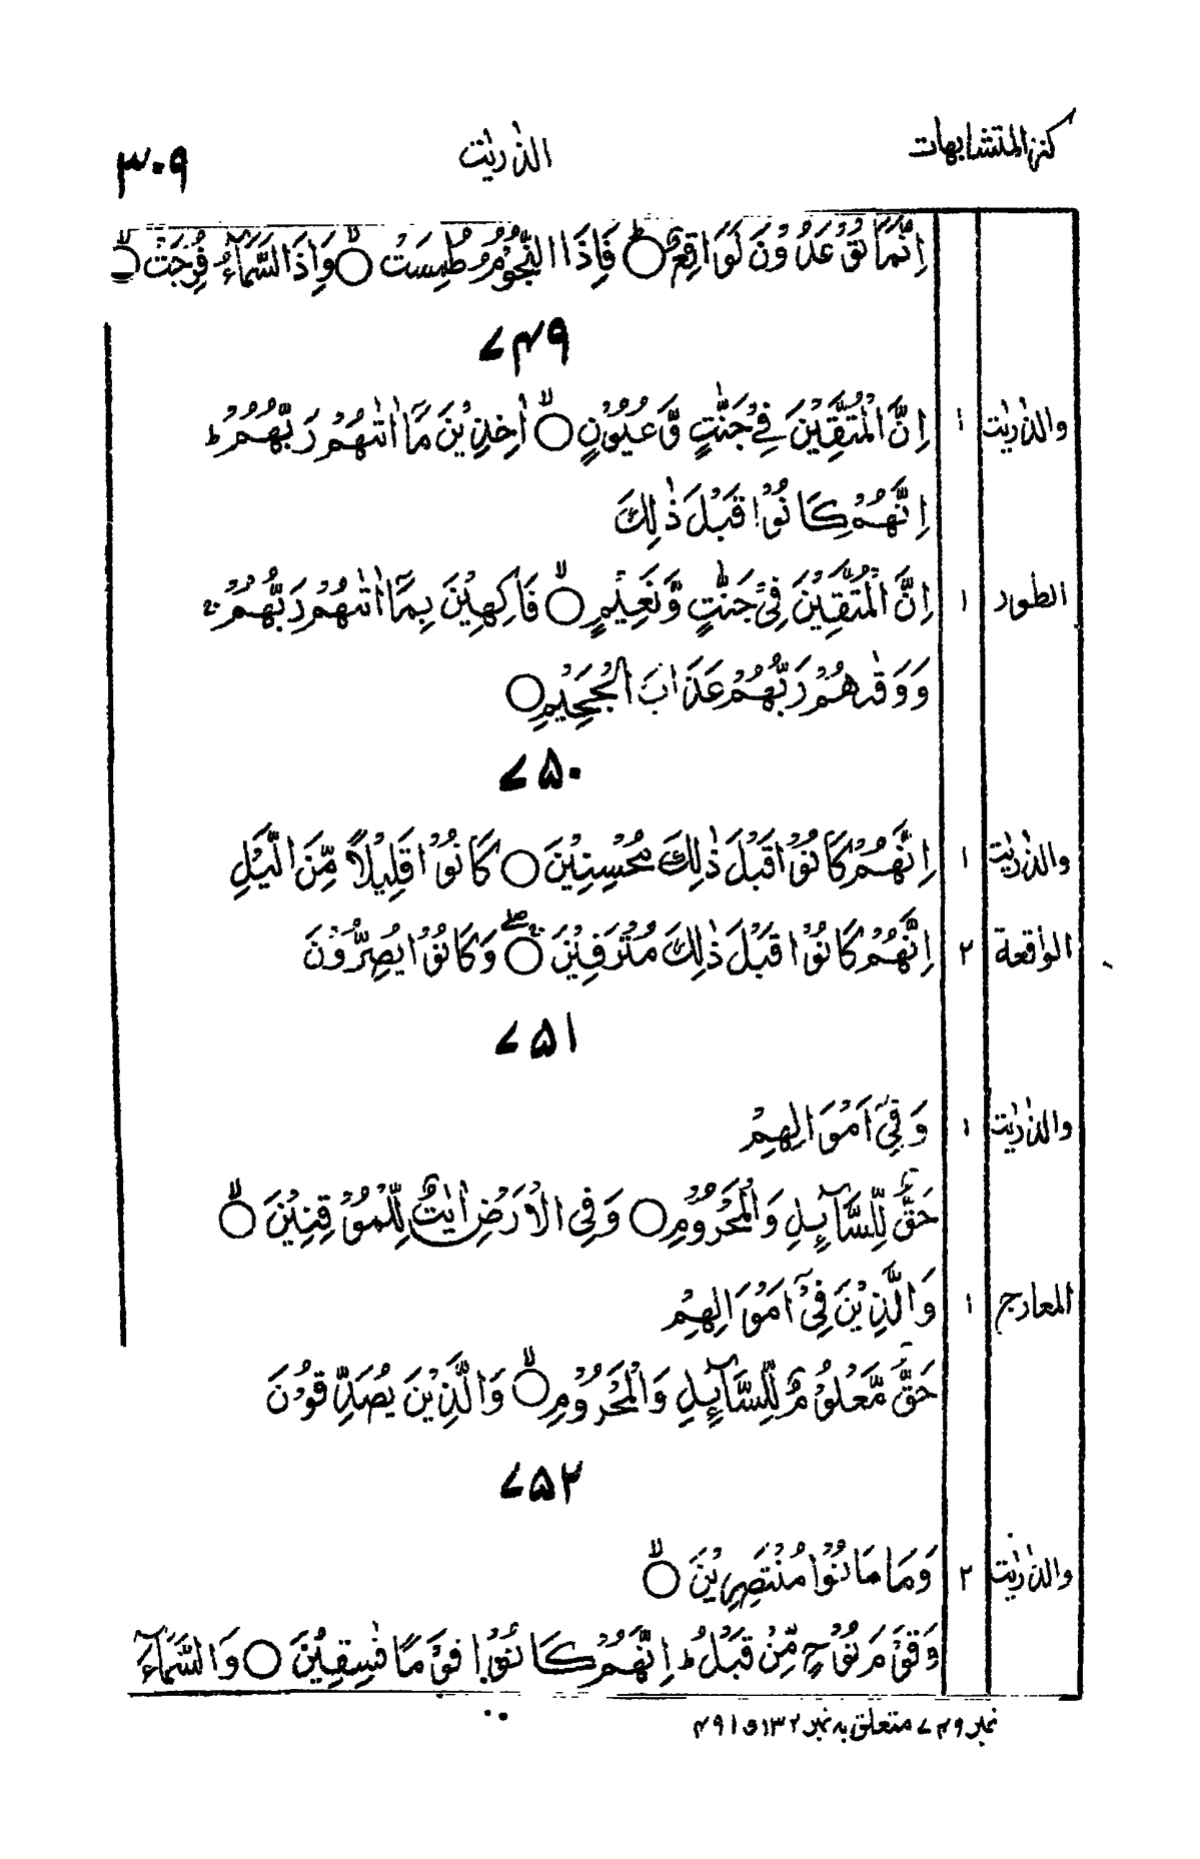 كنز المتشابهات الذّٰريٰت ٣٠٩
اِنَّمَا تُوْعَدُوْنَ لَوَاقِعٌ ؕ○ فَاِذَا النُّجُوْمُ طُمِسَتْ ۙ○ وَاِذَا السَّمَآءُ فُرِجَتْ ۙ○
٧٤٩
والذّٰريٰت ١ اِنَّ الْمُتَّقِيْنَ فِيْ جَنّٰتٍ وَّعُيُوْنٍ ۙ○ اٰخِذِيْنَ مَاۤ اٰتٰىهُمْ رَبُّهُمْ ؕ
اِنَّهُمْ كَانُوْا قَبْلَ ذٰلِكَ
الطور ١ اِنَّ الْمُتَّقِيْنَ فِيْ جَنّٰتٍ وَّنَعِيْمٍ ۙ○ فَاكِهِيْنَ بِمَاۤ اٰتٰىهُمْ رَبُّهُمْ ۚ
وَوَقٰىهُمْ رَبُّهُمْ عَذَابَ الْجَحِيْمِ○
٧٥٠
والذّٰريٰت ١ اِنَّهُمْ كَانُوْا قَبْلَ ذٰلِكَ مُحْسِنِيْنَ○ كَانُوْا قَلِيْلًا مِّنَ الَّيْلِ
الواقعة ٢ اِنَّهُمْ كَانُوْا قَبْلَ ذٰلِكَ مُتْرَفِيْنَ ۚۖ○ وَكَانُوْا يُصِرُّوْنَ
٧٥١
والذّٰريٰت ١ وَفِيْۤ اَمْوَالِهِمْ
حَقٌّ لِّلسَّآئِلِ وَالْمَحْرُوْمِ○ وَفِى الْاَرْضِ اٰيٰتٌ لِّلْمُوْقِنِيْنَ ۙ○
المعارج ١ وَالَّذِيْنَ فِيْۤ اَمْوَالِهِمْ
حَقٌّ مَّعْلُوْمٌ لِّلسَّآئِلِ وَالْمَحْرُوْمِ ۙ○ وَالَّذِيْنَ يُصَدِّقُوْنَ
٧٥٢
والذّٰريٰت ٢ وَمَا كَانُوْا مُنْتَصِرِيْنَ ۙ○
وَقَوْمَ نُوْحٍ مِّنْ قَبْلُ ؕ اِنَّهُمْ كَانُوْا قَوْمًا فٰسِقِيْنَ○ وَالسَّمَآءَ
نمبر ٧٤٩ متعلق به نمبر ١٣٢ و ٤٩١